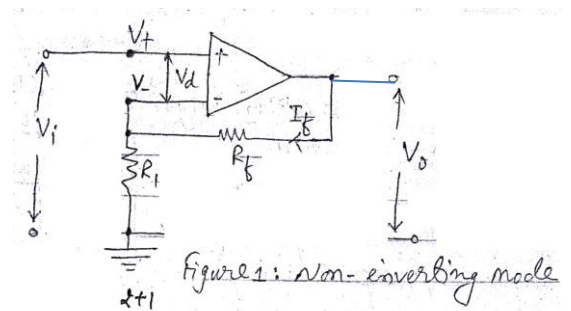 V+
+
V-
Vd
-
Vi
If
Rf
R1
Vo
Figure 1: Non-inverting mode
2+1